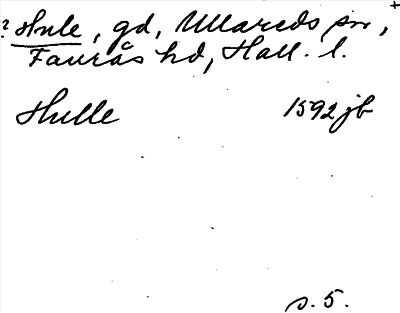 ? Hule, gd, Ullareds sn, +
Faurås hd, Hall. l.
Hulle 1592 jb
s. 5.